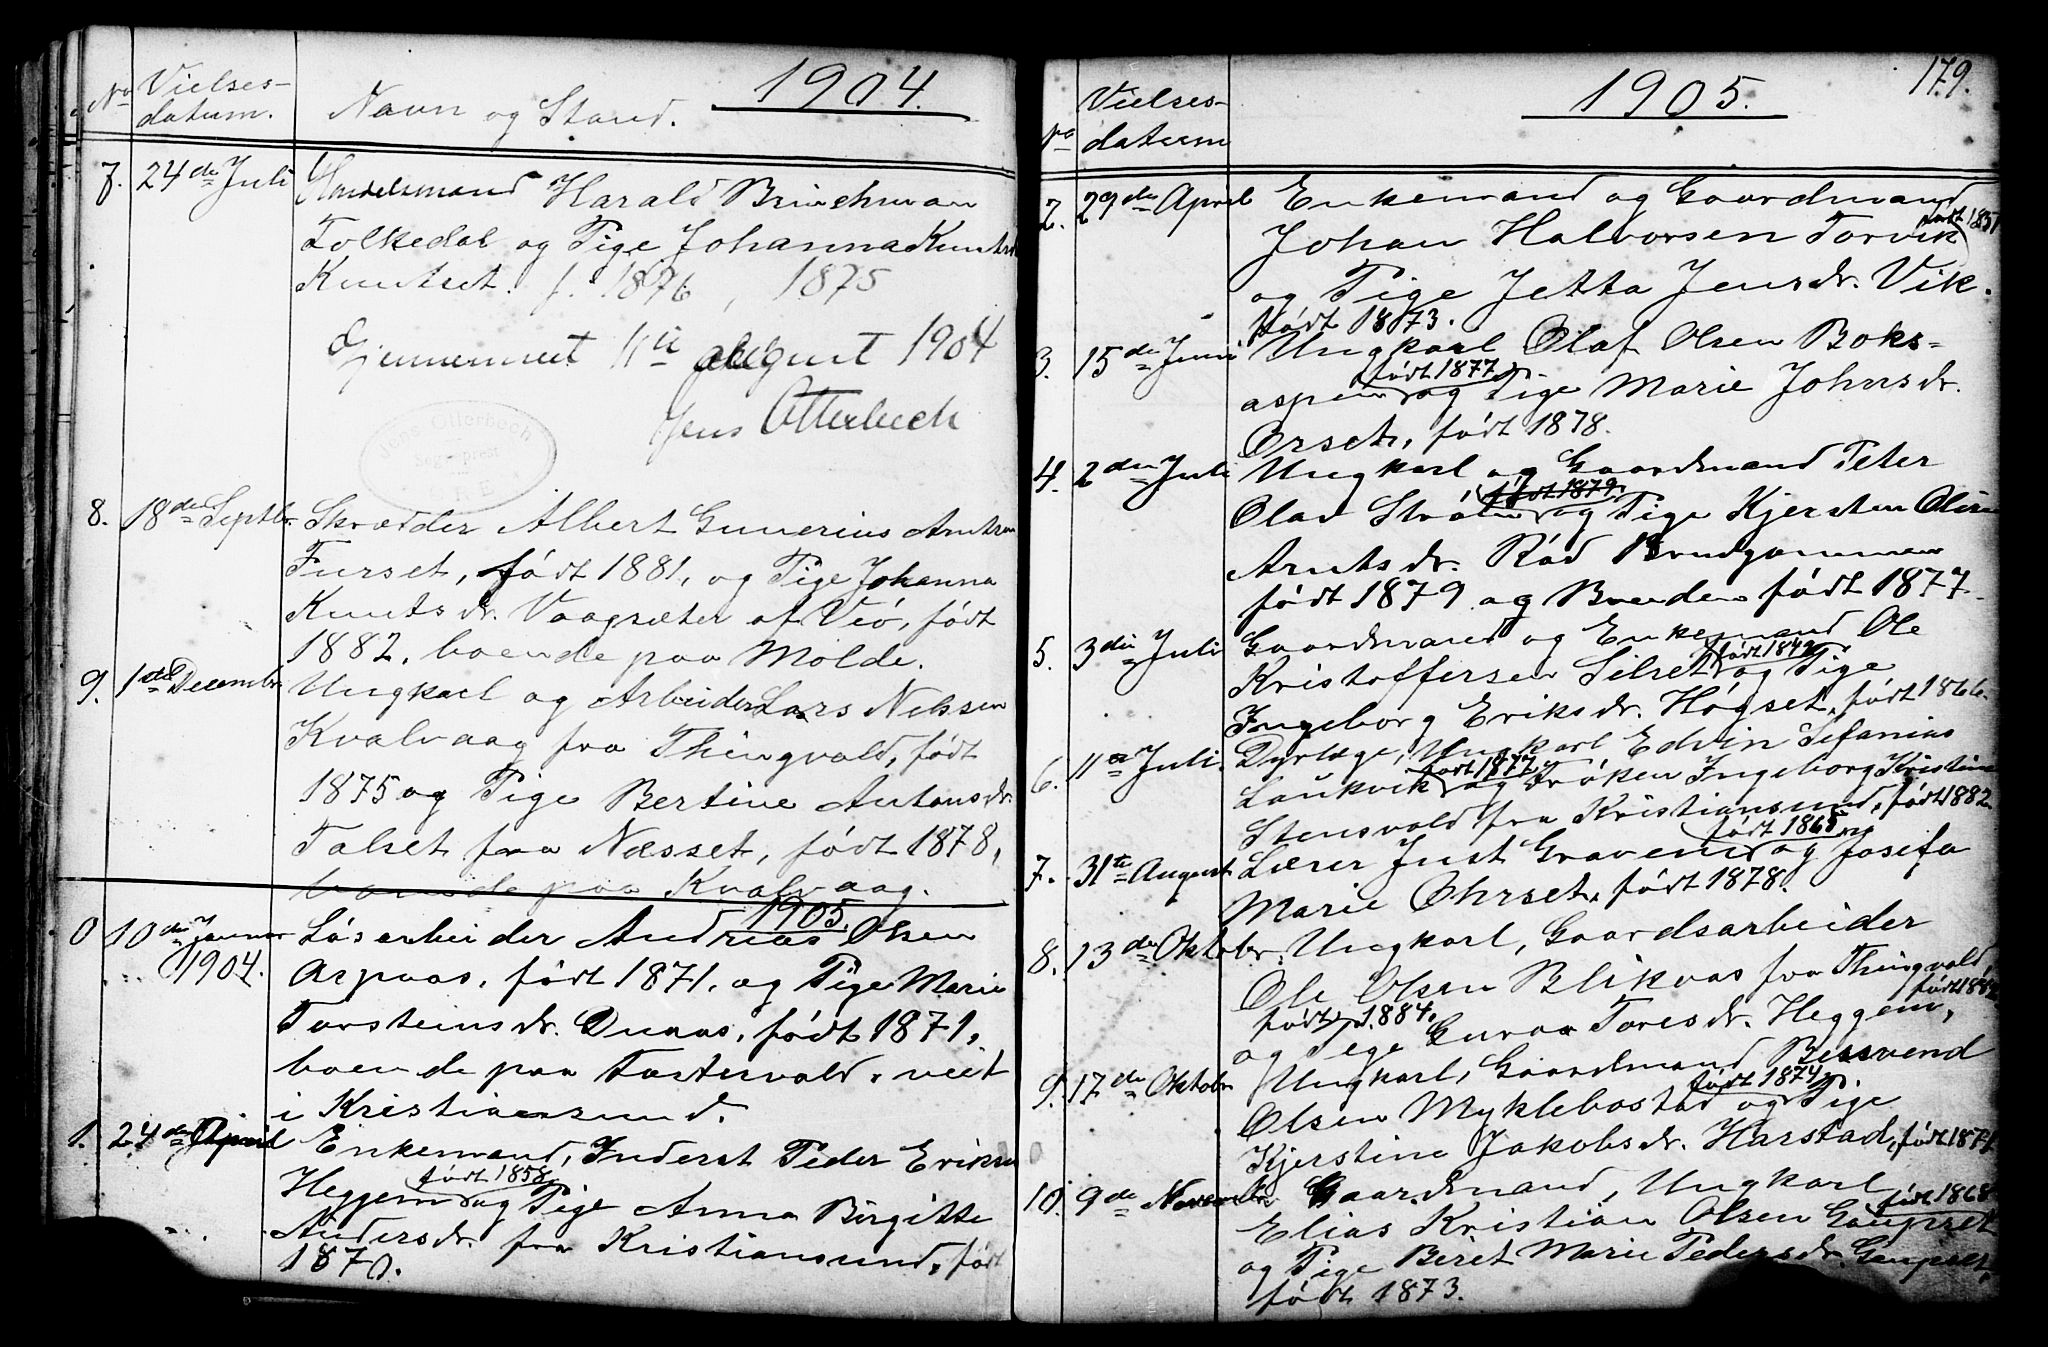 No Vielses-
datum.
Navn og Stand.
1904.
7. 24de Juli Handelsmand Harald Brinchman
Folkedal og Pige Johanna Knuts
Knutset. f. 1876, 1875
Gjennemseet 11te August 1904
Jens Otterbech
Jens Otterbech
Sogneprest
8. 18de Septbr. Skrædder Albert Gunerius Arntsen
Furset, født 1881, og Pige Johanna
Knutsdr. Vaagsæter af Veö, født
1882, boende paa Molde.
9. 1ste Decembr. Ungkarl og Arbeider Lars Nelssen
Kvalvaag fra Thingvald, født
1875 og Pige Bertine Antonsdr.
Talset fra Næsset, født 1878,
boende paa Kvalvaag.
1905.
0 10de Januar Løsarbeider Andreas Olsen
1904. Aspaas, født 1871, og Pige Marie
Torsteinsdr. Duaas, født 1871,
boende paa, viet
i Kristiansund.
1. 24de April Enkemand, Inderst Peder Eriksen
født 1858
Heggem og Pige Anna Birgitte
Andersdr. fra Kristiansund, født
1870.
179.
Vielses-
No datum
1905.
2. 29de April Enkemand og Gaardmand
født 1851
Johan Halvorsen Torvik
og Pige Jetta Jensdr. Vik.
født 1873.
3. 15de Juni Ungkarl Olaf Olsen Boks-
født 1877
aspen og Pige Marie Johnsdr.
Orset, født 1878.
4. 2den Juli Ungkarl og Gaardmand Peter
født 1879
Olav Strøm og Pige Kjersten Oline
Arntsdr. Rød Brudgommen
født 1879 og Bruden født 1877.
5. 3die Juli Gaardmand og Enkemand Ole
født 1842
Kristoffersen Silset og Pige
Ingeborg Eriksdr. Høgset, født 1866.
6. 11te Juli. Dyrlæge, Ungkarl Edvin Stefanias
født 1877
Laukvik og Frøken Ingeborg Kristine
Stensvold fra Kristiansund, født 1882.
født 1865
7. 31te August Lærer Just Gravem og Josefa
Marie Ohrset, født 1878.
8. 13de Oktobr. Ungkarl, Gaardsarbeider
Ole Olsen Blikaas fra Thingvold,
født 1884,
og Pige Guraa Toresdr. Heggem,
født 1884
9. 17de Oktobr Ungkarl, Gaardmand
født 1874
Olsen Myklebostad og Pige
Kjerstine Jakobsdr. Harstad, født 1871
10. 9de Novembr. Gaardmand, Ungkarl
født 1868
Elias Kristian Olsen Gaupset
og Pige Beret Marie Pedersdr. Gaupset,
født 1873.